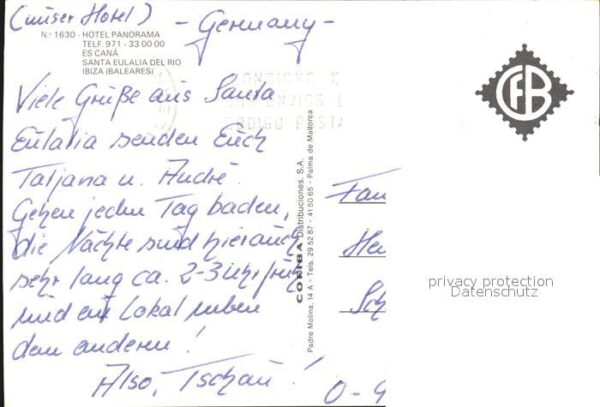 (unser Hotel)
- Germany -
N.º 1630 - HOTEL PANORAMA
TELF. 971 - 33 00 00
ES CANÁ
SANTA EULALIA DEL RIO
IBIZA (BALEARES)
CFB
Viele Grüße aus Santa
Eulalia senden Euch
Tatjana u. André.
Gehen jeden Tag baden,
die Nächte sind hier auch
sehr lang ca. 2-3 Uhr früh
sind ein Lokal neben
dem anderen!
Also, Tschau!
COMERCIAL Distribuciones, S.A.
Padre Molina, 14 A - Tels. 29 52 87 - 41 50 65 - Palma de Mallorca
CODIGO POSTAL
Fam
He
Sch
O-9
privacy protection
Datenschutz